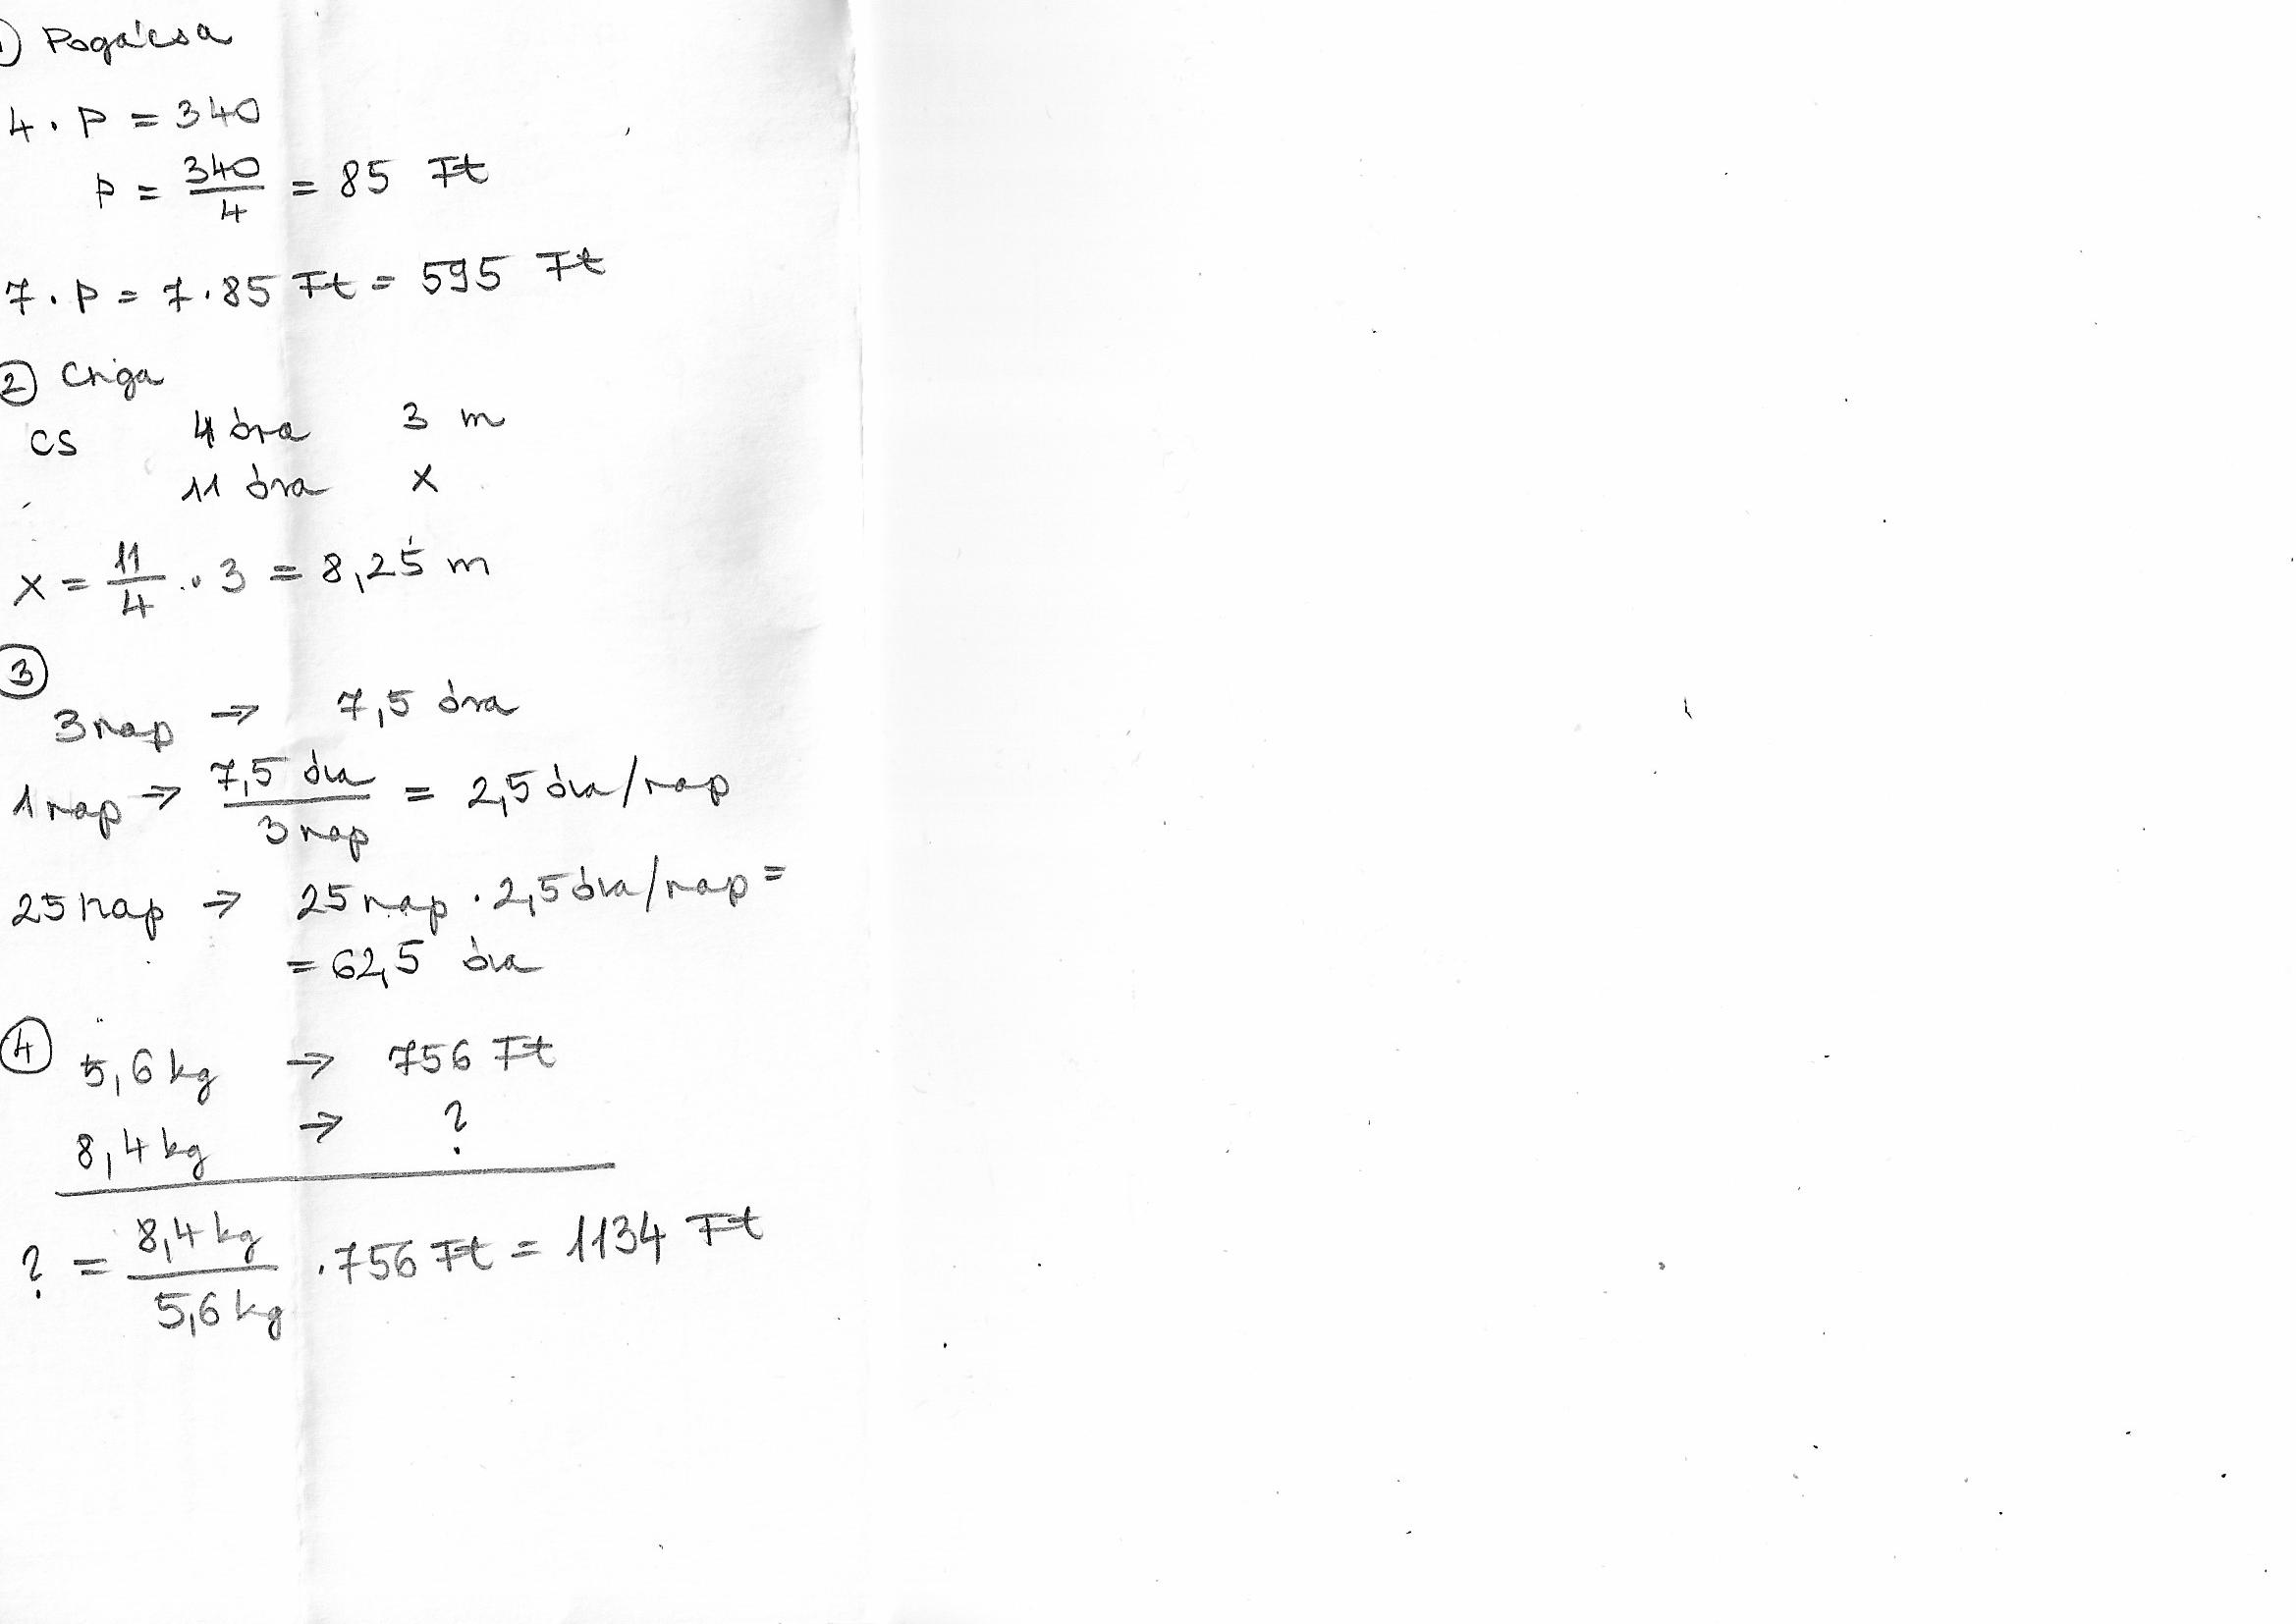 ① Pogácsa
4 · P = 340
P = 340/4 = 85 Ft
7 · P = 7 · 85 Ft = 595 Ft
② Csiga
CS 4 óra 3 m
11 óra x
x = 11/4 · 3 = 8,25 m
③
3 nap → 7,5 óra
1 nap → 7,5 óra/3 nap = 2,5 óra/nap
25 nap → 25 nap · 2,5 óra/nap =
= 62,5 óra
④ 5,6 kg → 756 Ft
8,4 kg → ?
? = 8,4 kg/5,6 kg · 756 Ft = 1134 Ft